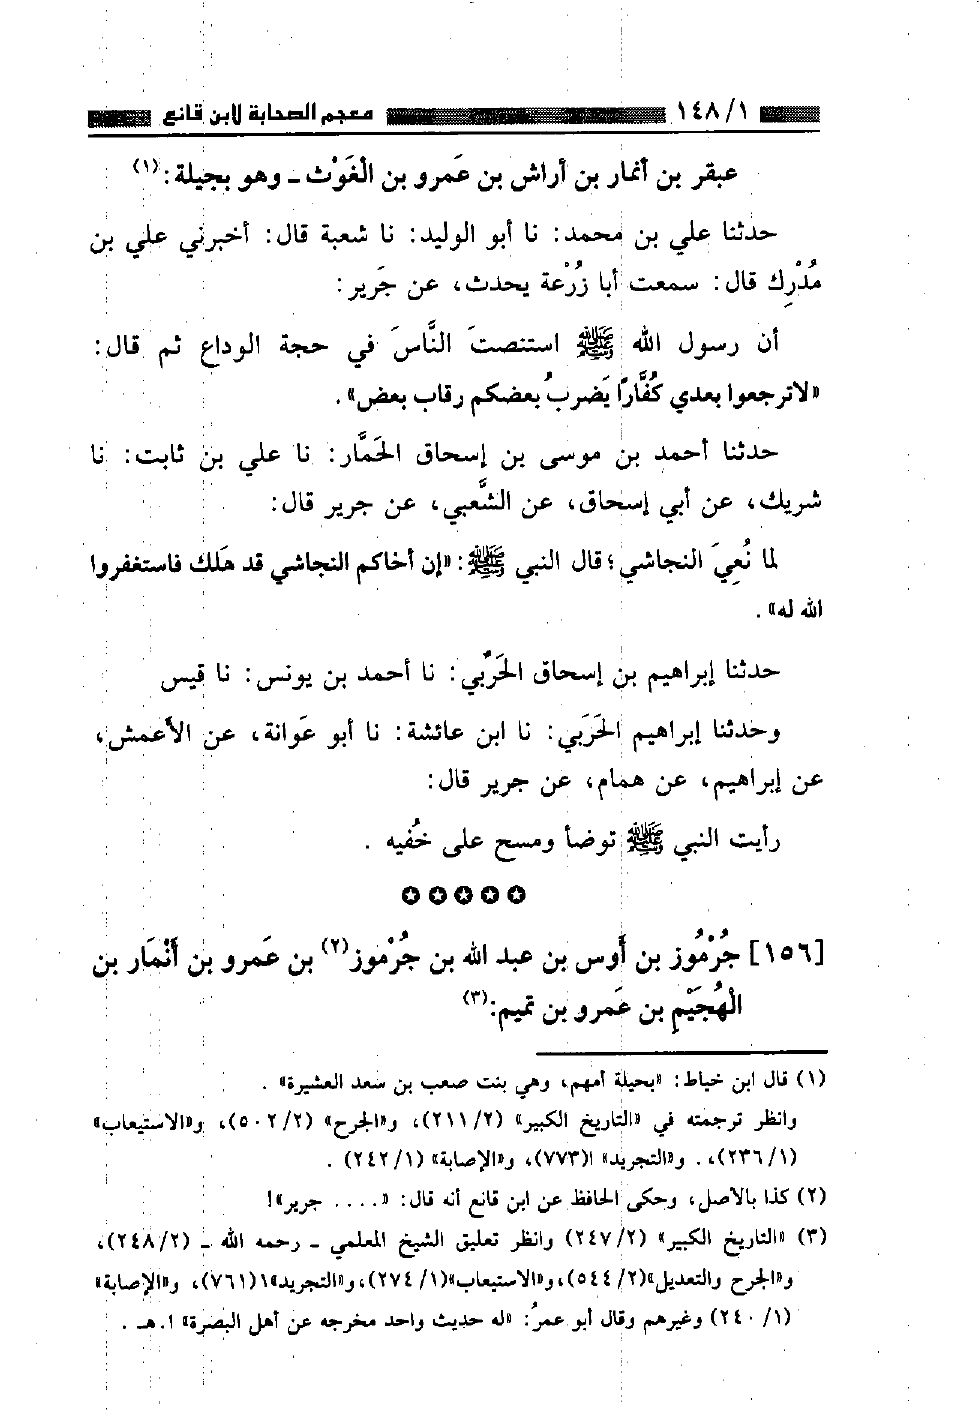 ١/١٤٨ معجم الصحابة لابن قانع
عبقر بن أنمار بن أراش بن عَمرو بن الْغَوْث ـ وهو بجيلة:(١)
حدثنا علي بن محمد: نا أبو الوليد: نا شعبة قال: أخبرني علي بن
مُدْرِك قال: سمعت أبا زُرْعة يحدث، عن جَرير:
أن رسول الله ﷺ استنصتَ النَّاسَ في حجة الوداع ثم قال:
«لاترجعوا بعدي كُفَّارًا يَضربُ بعضكم رقاب بعض».
حدثنا أحمد بن موسى بن إسحاق الحَمَّار: نا علي بن ثابت: نا
شريك، عن أبي إسحاق، عن الشَّعبي، عن جرير قال:
لما نُعِيَ النجاشي؛ قال النبي ﷺ: «إن أخاكم النجاشي قد هَلَك فاستغفروا
الله له».
حدثنا إبراهيم بن إسحاق الحَرْبي: نا أحمد بن يونس: نا قيس
وحدثنا إبراهيم الحَرَبي: نا ابن عائشة: نا أبو عَوانة، عن الأعمش،
عن إبراهيم، عن همام، عن جرير قال:
رأيت النبي ﷺ توضأ ومسح على خُفيه .
✪✪✪✪✪
[١٥٦] جُرْمُوز بن أَوس بن عبد الله بن جُرْموز(٢) بن عَمرو بن أَنْمَار بن
الْهُجَيْمِ بن عَمرو بن تميم:(٣)
(١) قال ابن خياط: «بجيلة أمهم، وهي بنت صعب بن سعد العشيرة» .
وانظر ترجمته في «التاريخ الكبير» (٢/٢١١)، و«الجرح» (٢/٥٠٢)، و«الاستيعاب»
(١/٢٣٦)، . و«التجريد» ١(٧٧٣)، و«الإصابة» (١/٢٤٢) .
(٢) كذا بالأصل، وحكى الحافظ عن ابن قانع أنه قال: «.... جرير»!
(٣) «التاريخ الكبير» (٢/٢٤٧) وانظر تعليق الشيخ المعلمي ـ رحمه الله ـ (٢/٢٤٨)،
و«الجرح والتعديل»(٢/٥٤٤)،و«الاستيعاب»(١/٢٧٤)،و«التجريد»١(٧٦١)، و«الإصابة»
(١/٢٤٠) وغيرهم وقال أبو عمرُ: «له حديث واحد مخرجه عن أهل البصرة» ا.هـ .